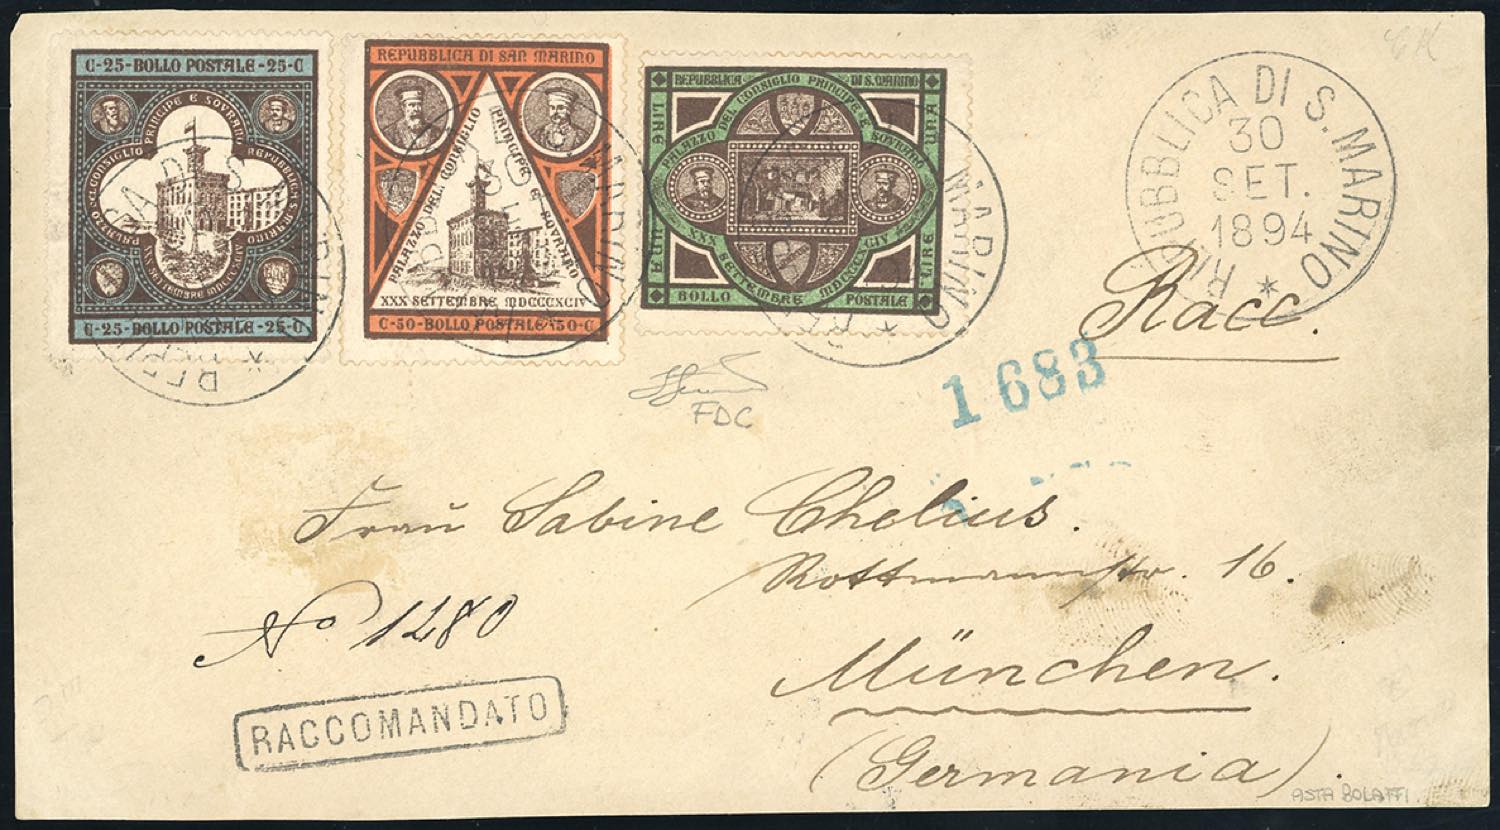 C-25-BOLLO POSTALE-25-C
CONSIGLIO PRINCIPE E SOVRANO
REPUBBLICA S. MARINO
PALAZZO DEL
XXX SETTEMBRE MDCCCXCIV
C-25-BOLLO POSTALE-25-C
REPUBBLICA DI SAN MARINO
PALAZZO DEL CONSIGLIO
PRINCIPE E SOVRANO
XXX SETTEMBRE MDCCCXCIV
C-50-BOLLO POSTALE-50-C
REPUBBLICA DI S. MARINO
PALAZZO DEL CONSIGLIO PRINCIPE E SOVRANO
LIRE UNA
LIRE UNA
XXX SETTEMBRE MDCCCXCIV
BOLLO POSTALE
REPUBBLICA DI S. MARINO
30
SET.
1894
Racc.
1683
FDC
Frau Sabine Chelius.
Rottmannstr. 16.
No 1280
München.
RACCOMANDATO
(Germania).
ASTA BOLAFFI.